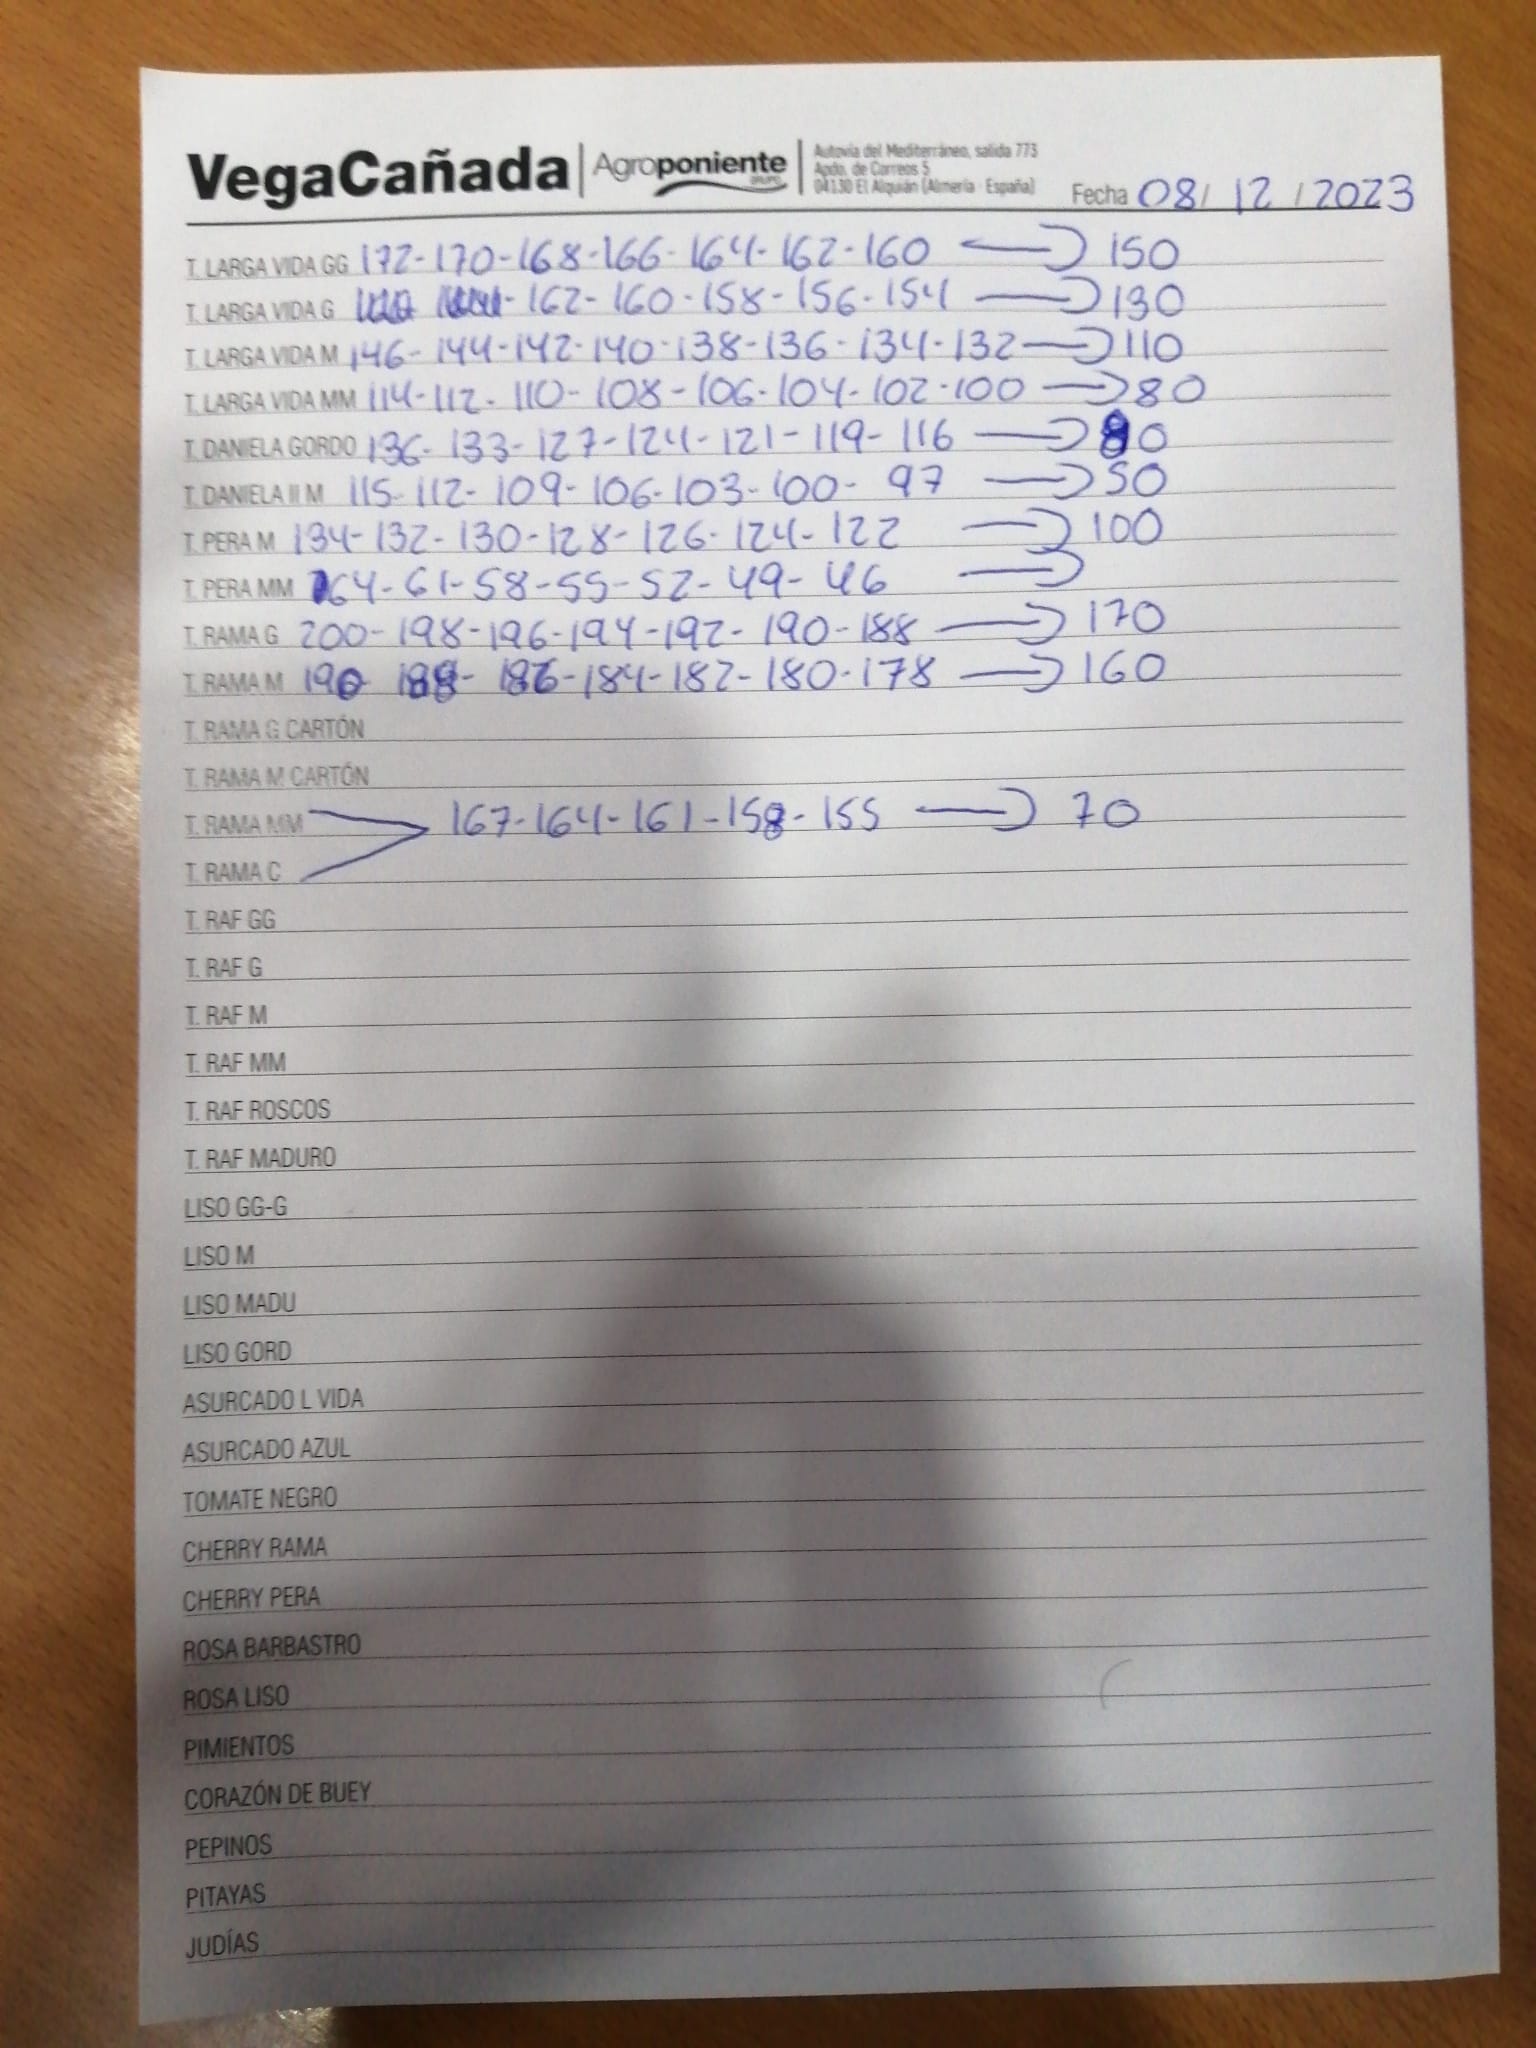 VegaCañada Agroponiente GRUPO Autovía del Mediterráneo, salida 773
Apdo. de Correos 5
04130 El Alquián (Almería - España)
Fecha 08/12/2023
T. LARGA VIDA GG 172-170-168-166-164-162-160 → 150
T. LARGA VIDA G 162-160-158-156-154 → 130
T. LARGA VIDA M 146-144-142-140-138-136-134-132 → 110
T. LARGA VIDA MM 114-112-110-108-106-104-102-100 → 80
T. DANIELA GORDO 136-133-127-124-121-119-116 → 80
T. DANIELA II M 115-112-109-106-103-100-97 → 50
T. PERA M 134-132-130-128-126-124-122 → 100
T. PERA MM 64-61-58-55-52-49-46 →
T. RAMA G 200-198-196-194-192-190-188 → 170
T. RAMA M 190-188-186-184-182-180-178 → 160
T. RAMA G CARTÓN
T. RAMA M CARTÓN
T. RAMA MM 167-164-161-158-155 → 70
T. RAMA C
T. RAF GG
T. RAF G
T. RAF M
T. RAF MM
T. RAF ROSCOS
T. RAF MADURO
LISO GG-G
LISO M
LISO MADU
LISO GORD
ASURCADO L VIDA
ASURCADO AZUL
TOMATE NEGRO
CHERRY RAMA
CHERRY PERA
ROSA BARBASTRO
ROSA LISO
PIMIENTOS
CORAZÓN DE BUEY
PEPINOS
PITAYAS
JUDÍAS